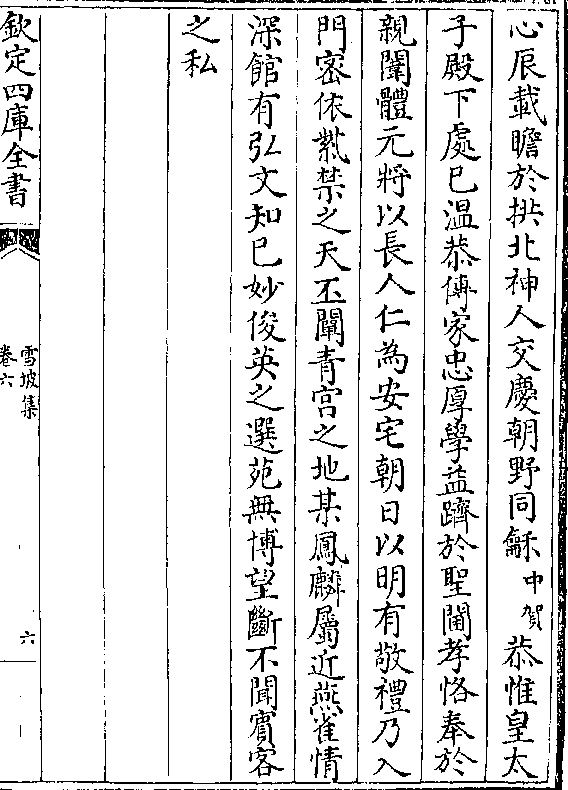 心辰載瞻於拱北神人交慶朝野同龢中賀恭惟皇太
子殿下處已温恭傳家忠厚學益躋於聖閫孝恪奉於
親闈體元將以長人仁為安宅朝日以明有敬禮乃入
門密依紫禁之天丕闡青宫之地某鳳麟屬近燕雀情
深館有弘文知已妙俊英之選苑無博望斷不聞賓客
之私
欽定四庫全書
雪坡集
卷六
六